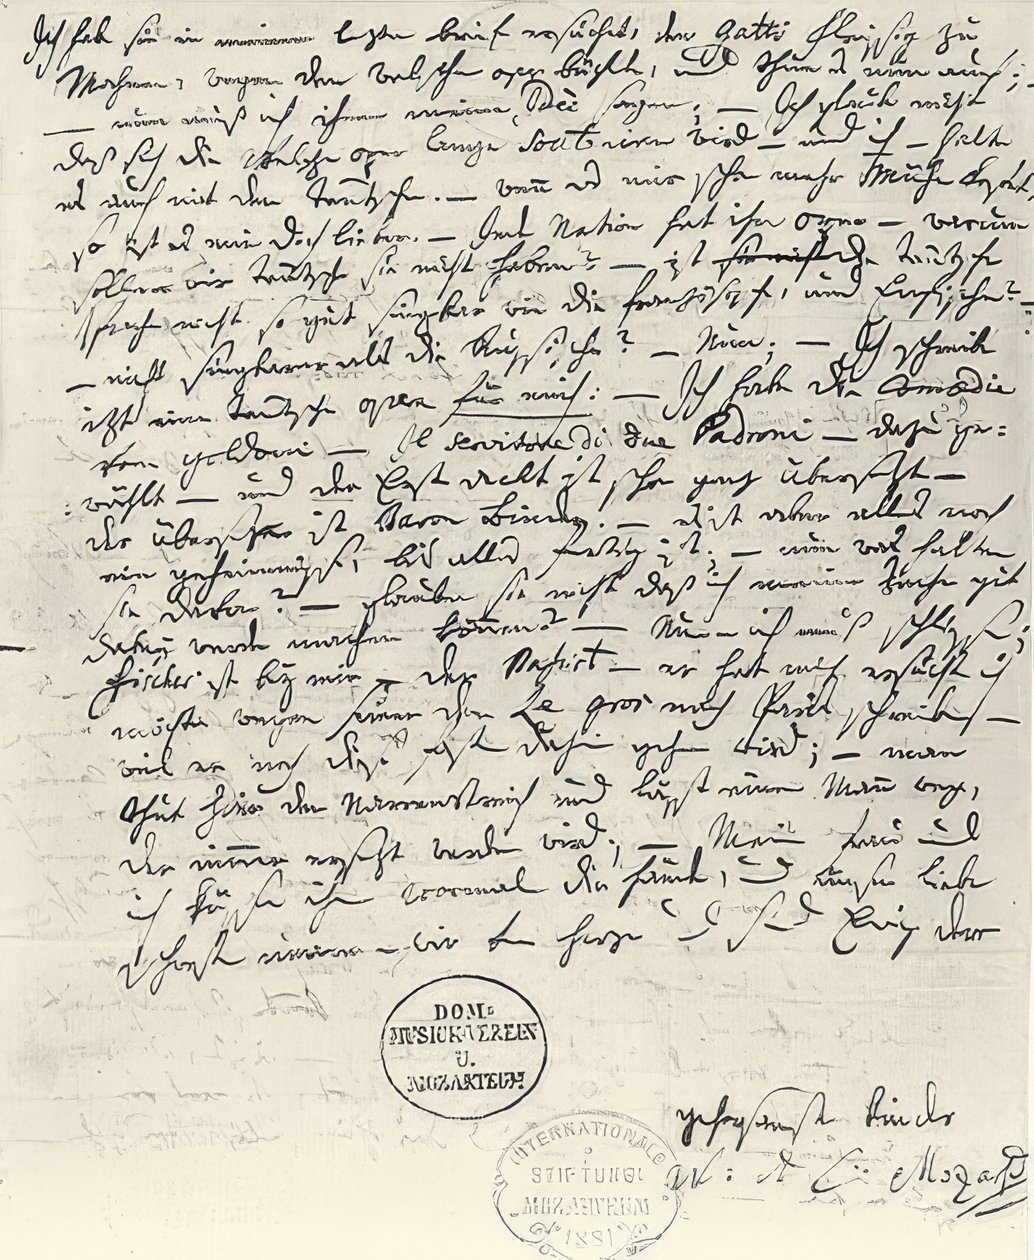 Ich habe sie in meinem lezten brief ersuchet, den gatti fleissig zu
Mahnen, wegen den welschen opera büchln, und thue es nun auch; –
— nun muß ich ihnen meine Idèe sagen; — Ich glaube nicht
daß sich die Welsche oper lange soutenieren wird — und ich — halte
es auch mit dem teütschen. — wenn es mir schon mehr Mühe kostet,
so ist es mir doch lieber. — Jede Nation hat ihre oper — warum
sollen wir teütsche sie nicht haben? — ist die teütsche
sprache nicht so gut singbar wie die französche, und Englische? —
— nicht singbarer als die Russische? — Nun; — Ich schreibe
izt eine teütsche opera für mich: — Ich habe die Comœdie
vom goldoni — Il servitore di Due Padroni — dazu ge=
wählt — und der Erste Ackt ist schon ganz übersezt —
der übersetzer ist Baron Binder. — es ist aber alles noch
ein geheimnüss, bis alles fertig ist; — nun was halten
sie davon? — glauben sie nicht daß ich meine Sache gut
dabey werde machen können? — Nun ich muß schliessen;
fischer ist bey mir — der Bassist — er hat mich ersucht ich
möchte wegen seiner dem Le gros nach Paris schreiben —
weil er noch diese fasten dahin gehen wird; — man
thut hier den Narrenstreich und lässt einen Mann weg,
der nimmer ersezt werden wird; — Mein Weib und
ich küssen ihnen 1000mal die hände, und unsere liebe
schwester umarmen wir von herzen und sind Ewig dero
DOM=
MUSICK-VEREIN
U.
MOZARTEUM
gehorsamste kinder
INTERNATIONALE
STIFTUNG:
MOZARTEUM
1881
W: A C: Mozart